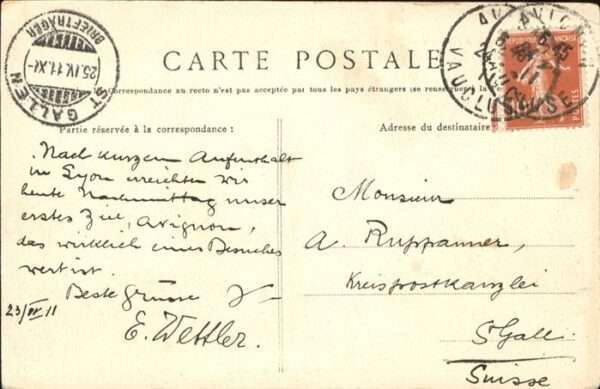 CARTE POSTALE
La Correspondance au recto n'est pas acceptée par tous les pays étrangers (se renseigner à la
Partie réservée à la correspondance :
Nach kurzem Aufenthalt
in Lyon erreichten wir
heute Nachmittag unser
erstes Ziel, Avignon,
das wirklich eines Besuches
wert ist.
Beste Grüsse
E. Wettler.
23/IV 11
Adresse du destinataire
Monsieur
A. Ruppanner,
Kreispostkanzlei
St Gall
Suisse
ST. GALLEN
25.IV.11.XI
BRIEFTRÄGER
AVIGNON
VAUCLUSE
POSTES